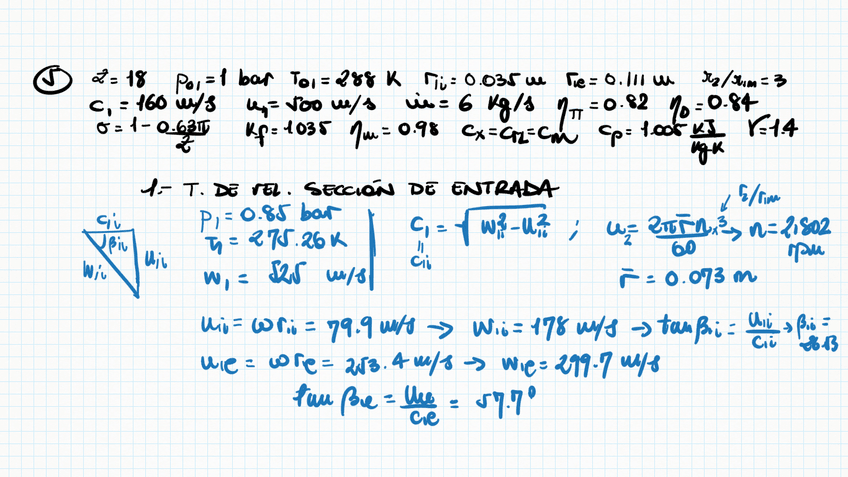 5 Z=18 p01=1 bar T01=288 K r1i=0.035 m r1e=0.111 m r2/r1m=3
C1=160 m/s u2=500 m/s ṁ=6 kg/s ηTT=0.82 ηD=0.84
σ=1-0.63π/Z kf=1035 ηm=0.98 Cx=Cr2=Cm Cp=1.005 kJ/kg·K γ=1.4
1.- T. DE VEL. SECCIÓN DE ENTRADA
r2/r1m
C1i β1i w1i u1i
p1=0.85 bar
T1=275.26 K
w1= 525 m/s
C1=√(w1i²-u1i²) ;
C1i
u2=2πr̄n/60 ×3 → n=2,802 rpm
r̄=0.073 m
u1i=ωr1i=79.9 m/s → w1i=178 m/s → tanβ1i=u1i/C1i → β1i=
u1e=ωre=253.4 m/s → w1e=299.7 m/s
tan β1e=u1e/C1e=57.7°